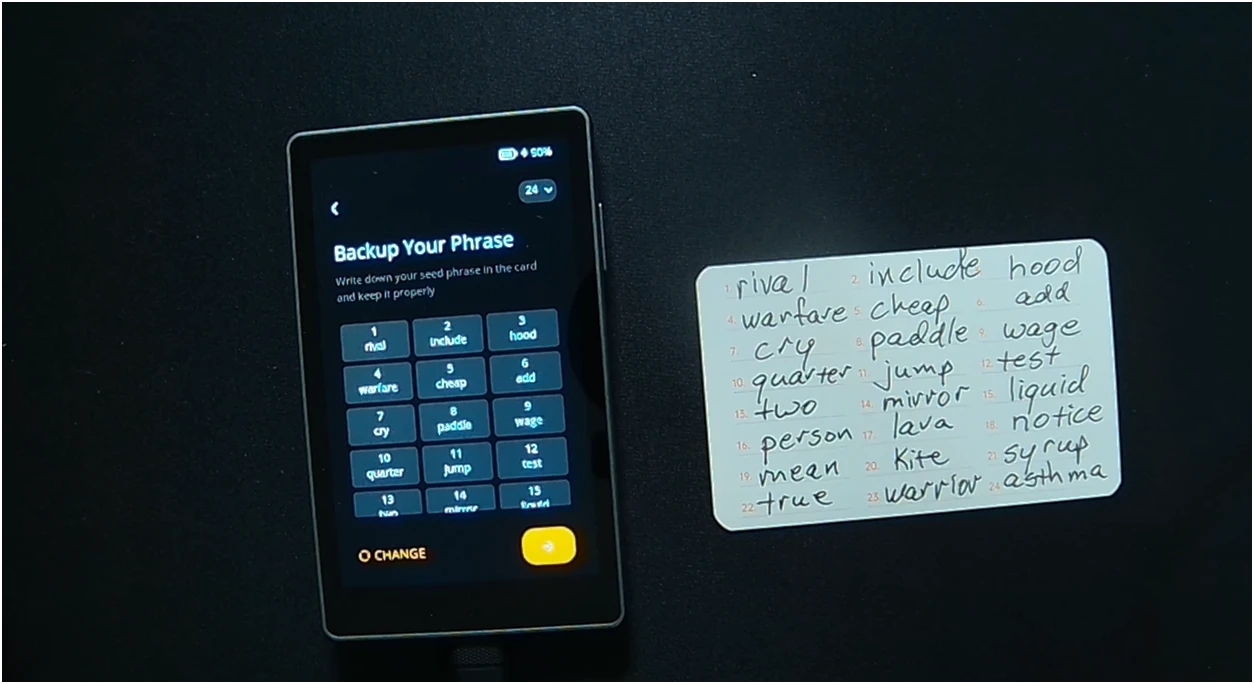 90%
24
Backup Your Phrase
Write down your seed phrase in the card
and keep it properly
1 2 3
rival include hood
4 5 6
warfare cheap add
7 8 9
cry paddle wage
10 11 12
quarter jump test
13 14 15
two mirror liquid
CHANGE
1. rival 2. include hood
4. warfare 5. cheap 6. add
7. cry 8. paddle 9. wage
10. quarter 11. jump 12. test
13. two 14. mirror 15. liquid
16. person 17. lava 18. notice
19. mean 20. kite 21. syrup
22. true 23. warrior 24. asthma